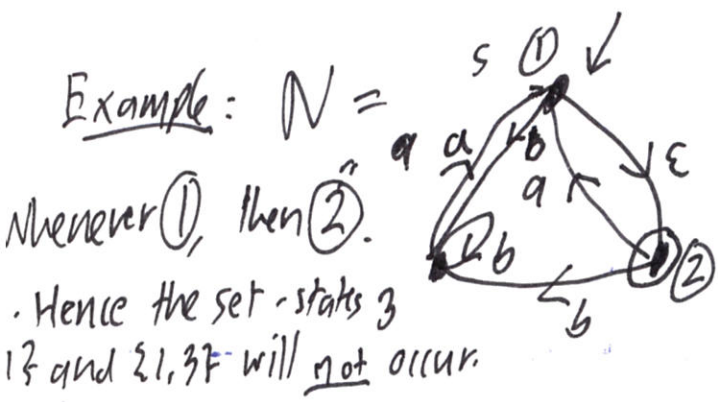 Example: N =
s ① 
a b ε
a
Whenever ①, then ②.
b ②
b
· Hence the set-states 3
1} and {1,3} will not occur.